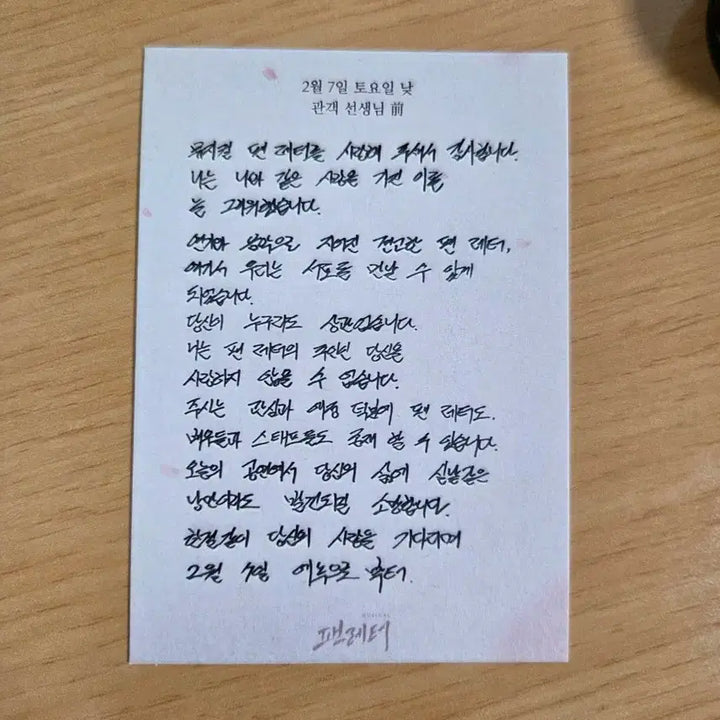 2월 7일 토요일 낮
관객 선생님 前
뮤지컬 팬 레터를 사랑해 주셔서 감사합니다.
나는 나와 같은 사람을 가진 이를
늘 그리워했습니다.
지어진 견고한 팬 레터,
여기서 우리는 서로를 만날 수 있게
되었습니다.
당신이 누구라도 상관없습니다.
나는 팬 레터의 주인인 당신을
사랑하지 않을 수 없습니다.
주시는 관심과 애정 덕분에 팬 레터도,
배우들과 스태프들도 존재 할 수 있습니다.
오늘의 공연에서 당신의 삶에 실낱같은
낭만이라도 발견되길 소망합니다.
한결같이 당신의 사랑을 기다리며
2월 7일
팬레터